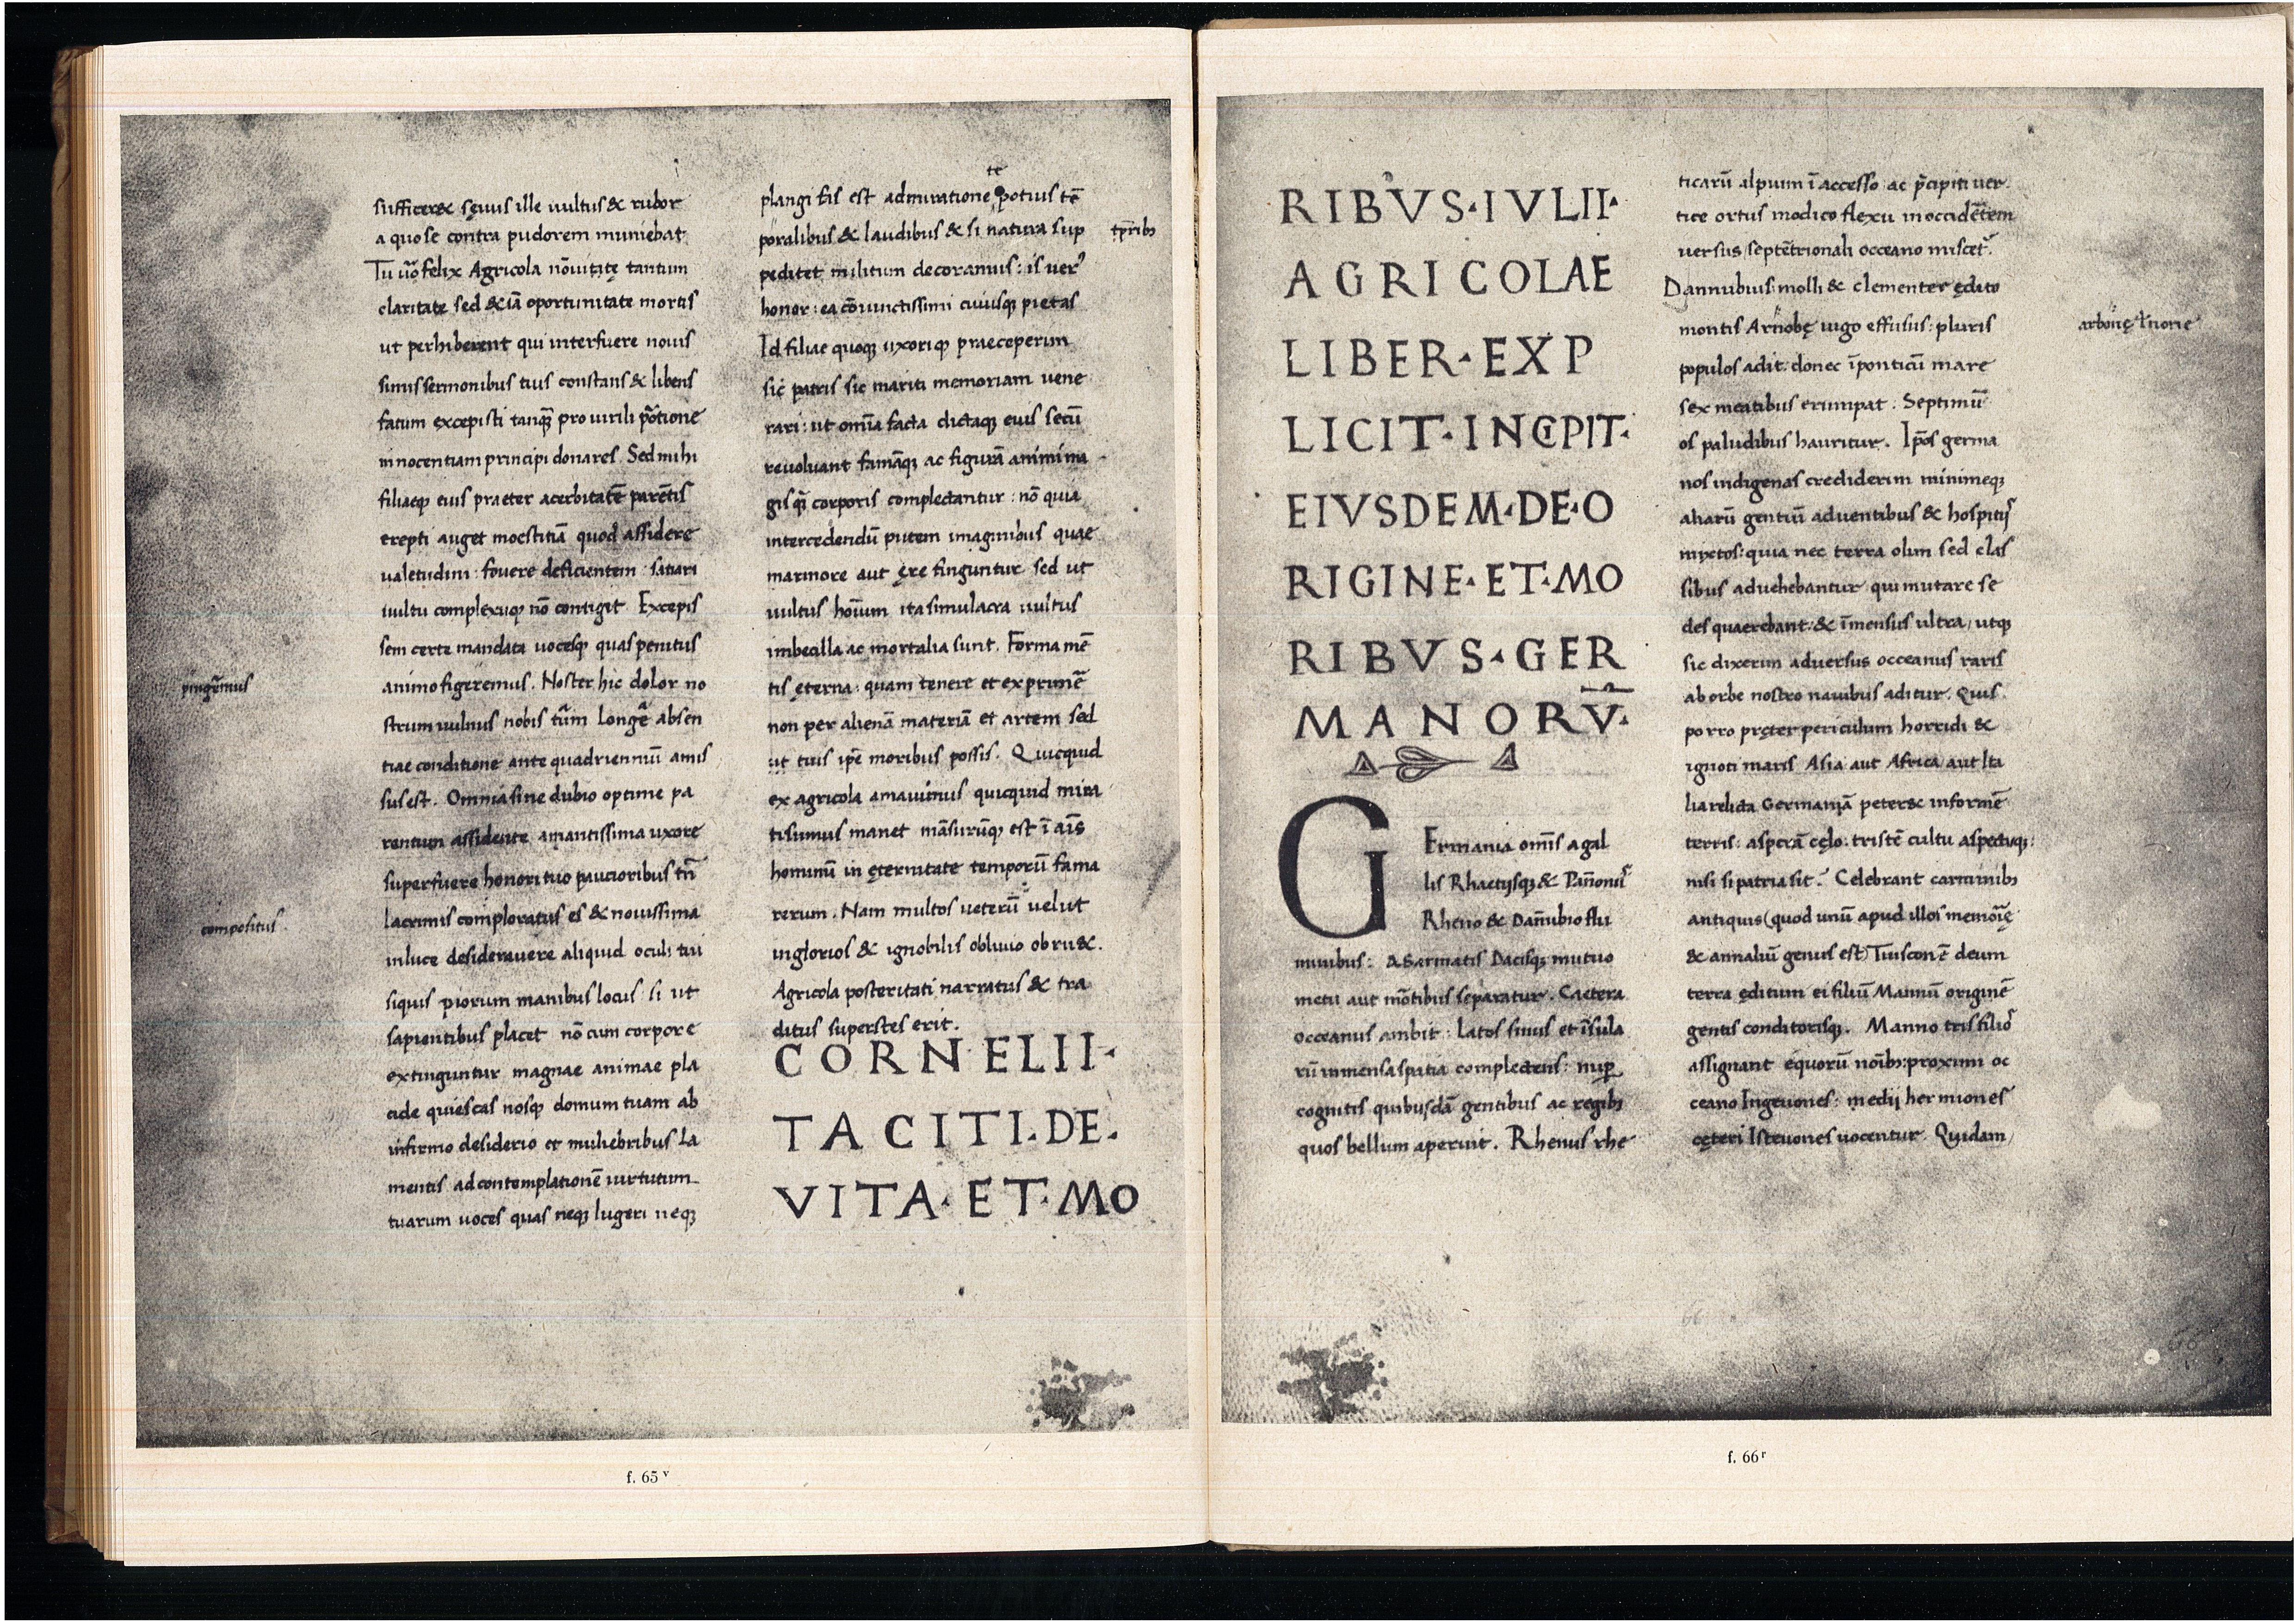 sufficeret sęuus ille uultus & rubor
a quo se contra pudorem muniebat
Tu uo᷃ felix Agricola nō uitę tantum
claritate sed & iā oportunitate mortis
ut perhiberent qui interfuere nouis
simis sermonibus tuis constans & libens
fatum excepisti tanq̄ pro uirili portione
innocentiam principi donares. Sed mihi
filiaeq; eius praeter acerbitatē parētis
erepti auget moestitiā quod assidere
ualetudini: fouere deficientem: satiari
uultu complexuq; nō contigit Excepis
sem certe mandata uocesq; quas penitus
pingeremus
animo figeremus. Noster hic dolor no
strum uulnus nobis tūm longē absen
tiae conditione ante quadriennium amis
sus est. Omnia sine dubio optime pa
rentum assidente amantissima uxore
superfuere honori tuo paucioribus tn̄
compositus.
lacrimis comploratus es & nouissima
in luce desiderauere aliquid oculi tui
siquis piorum manibus locus: si ut
sapientibus placet nō cum corpore
extinguntur magnae animae pla
cide quiescas nosq; domum tuam ab
infirmo desiderio et muliebribus la
mentis ad contemplationē uirtutum
tuarum uoces quas neq; lugeri neq;
te
plangi fas est admiratione potius tē
poralibus & laudibus & si natura sup
tp̄ribs
peditet militum decoramus: is uer᷃
honor: ea cōiunctissimi cuiusq; pietas
Id filiae quoq; uxoriq; praeceperim
sic patris sic mariti memoriam uene
rari: ut omīa facta dictaq; eius secū
reuoluant famāq; ac figurā animi ma
gis q̄ corporis complectantur: nō quia
intercedendū putem imaginibus quae
marmore aut ęre finguntur sed ut
uultus hoīum ita simulacra uultus
imbecilla ac mortalia sunt. Forma mē
tis ęterna: quam tenere et exprimē
non per alienā materiā et artem sed
ut tuis ip̄e moribus possis. Quicquid
ex agricola amauimus quicquid mira
ti sumus manet māsurūq; est ī aīs
hominū in ęternitate temporū fama
rerum. Nam multos ueterū uelut
inglorios & ignobilis obliuio obruet.
Agricola posteritati narratus & tra
ditus superstes erit.
CORNELII·
TACITI·DE·
VITA·ET·MO
f. 65ᵛ
RIBVS·IVLII·
AGRICOLAE
LIBER·EXP
LICIT·INCIPIT·
EIVSDEM·DE·O
RIGINE·ET·MO
RIBVS·GER
MANORV̄·
Germania omīs a gal
lis Rhaetijsq; & Pānoniis
Rheno & Danubio flu
minibus: A Sarmatis Dacisq; mutuo
metu aut mōtibus separatur. Caetera
occeanus ambit: Latos sinus et īsula
rū immensa spatia complectens: nuper
cognitis quibusdā gentibus ac regibs
quos bellum aperuit. Rhenus rhe
ticarū alpium ī accesso ac p̄cipiti uer
tice ortus modico flexu in occidētem
uersus septētrionali occeano miscet᷃.
Dannubius molli & clementer ędito
montis Arnobę iugo effusus: pluris
arbonę
populos adit: donec ī ponticū mare
sex meatibus erumpat: Septimū
os paludibus hauritur. Ip̄os germa
nos indigenas crediderim minimeq;
aliarū gentiū aduentibus & hospitijs
mixtos: quia nec terra olim sed clas
sibus aduehebantur qui mutare se
des quaerebant: & īmensus ultra, utq;
sic dixerim aduersus occeanus raris
ab orbe nostro nauibus aditur. Quis
porro pręter periculum horridi &
ignoti maris Asia aut Africa aut Ita
lia relicta Germaniā peteret informē
terris: asperā cęlo: tristē cultu aspectuq;:
nisi si patria sit. Celebrant carminibs
antiquis (quod unū apud illos memorię
& annaliū genus est) Tuisconē deum
terra ęditum ei filiū Mannū originē
gentis conditorisq;. Manno tris filios
assignant e quorū noībs: proximi oc
ceano Ingeuones: medij hermiones
cęteri Isteuones uocentur. Quidam
66
f. 66ʳ